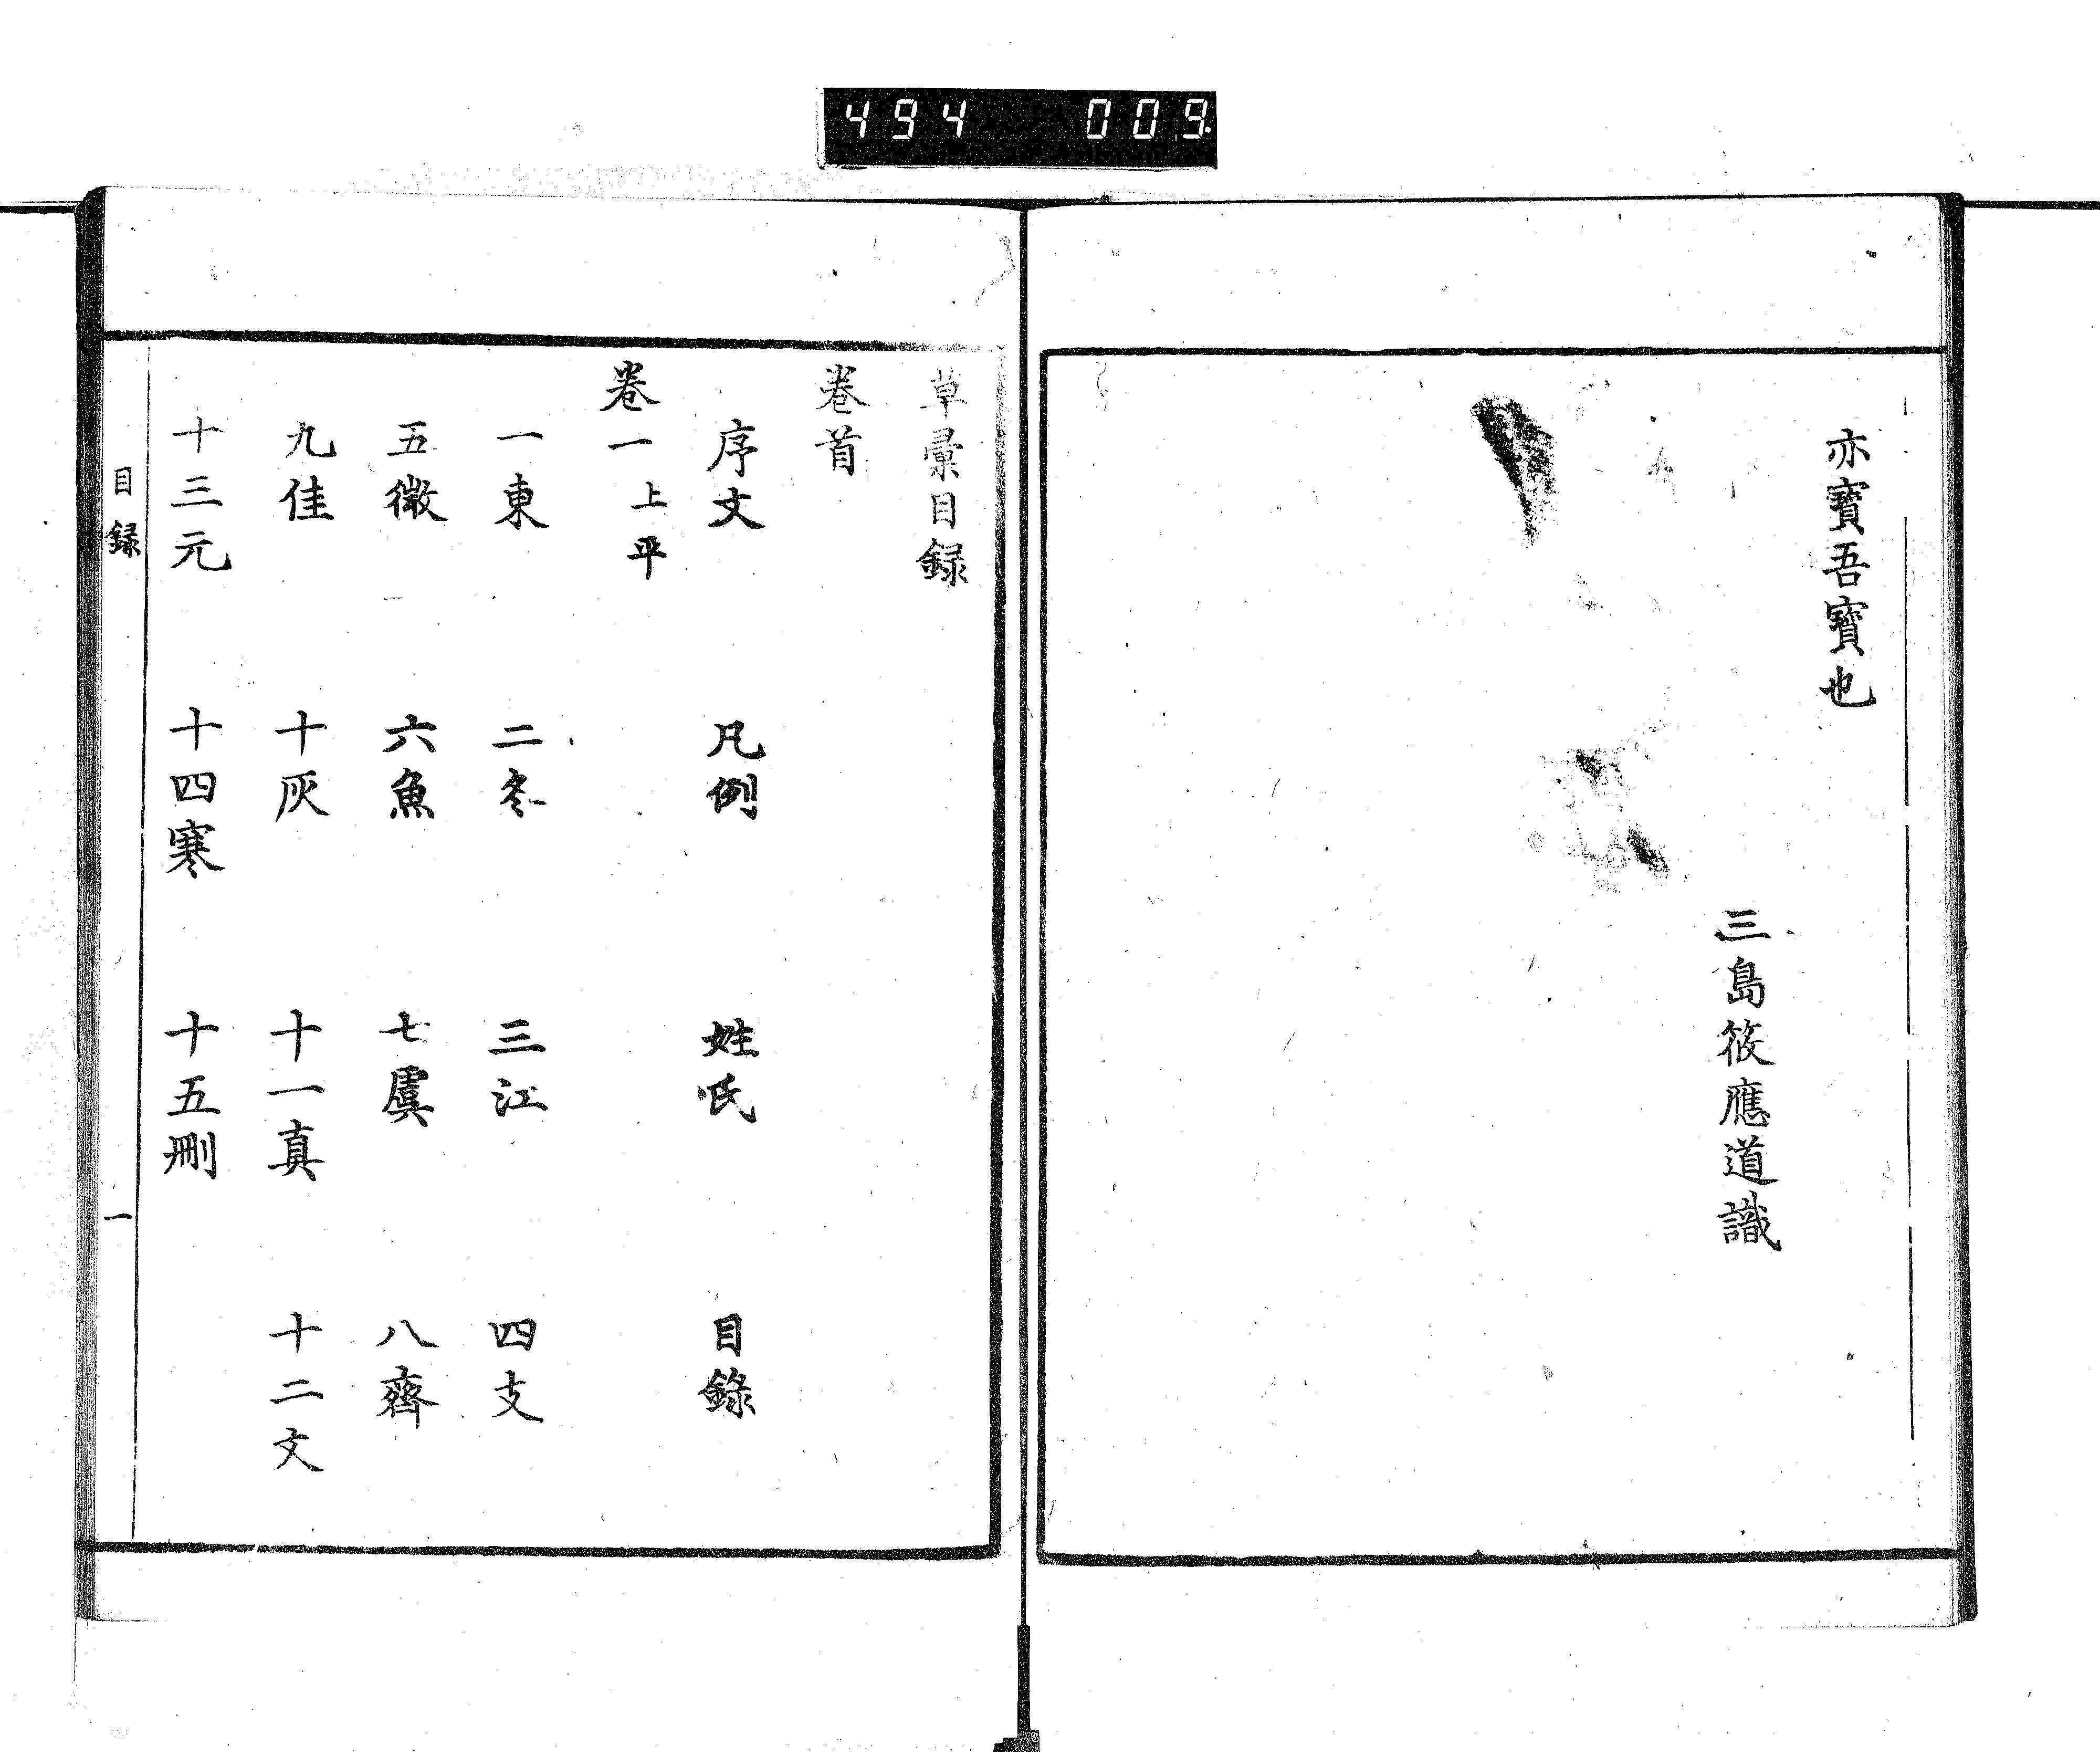 494 009
亦寶吾寶也
三島筱應道識
草彙目録
卷首
序文 凡例 姓氏 目錄
卷一 上平
一東 二冬 三江 四支
五微 六魚 七虞 八齊
九佳 十灰 十一真 十二文
十三元 十四寒 十五刪
目録 一